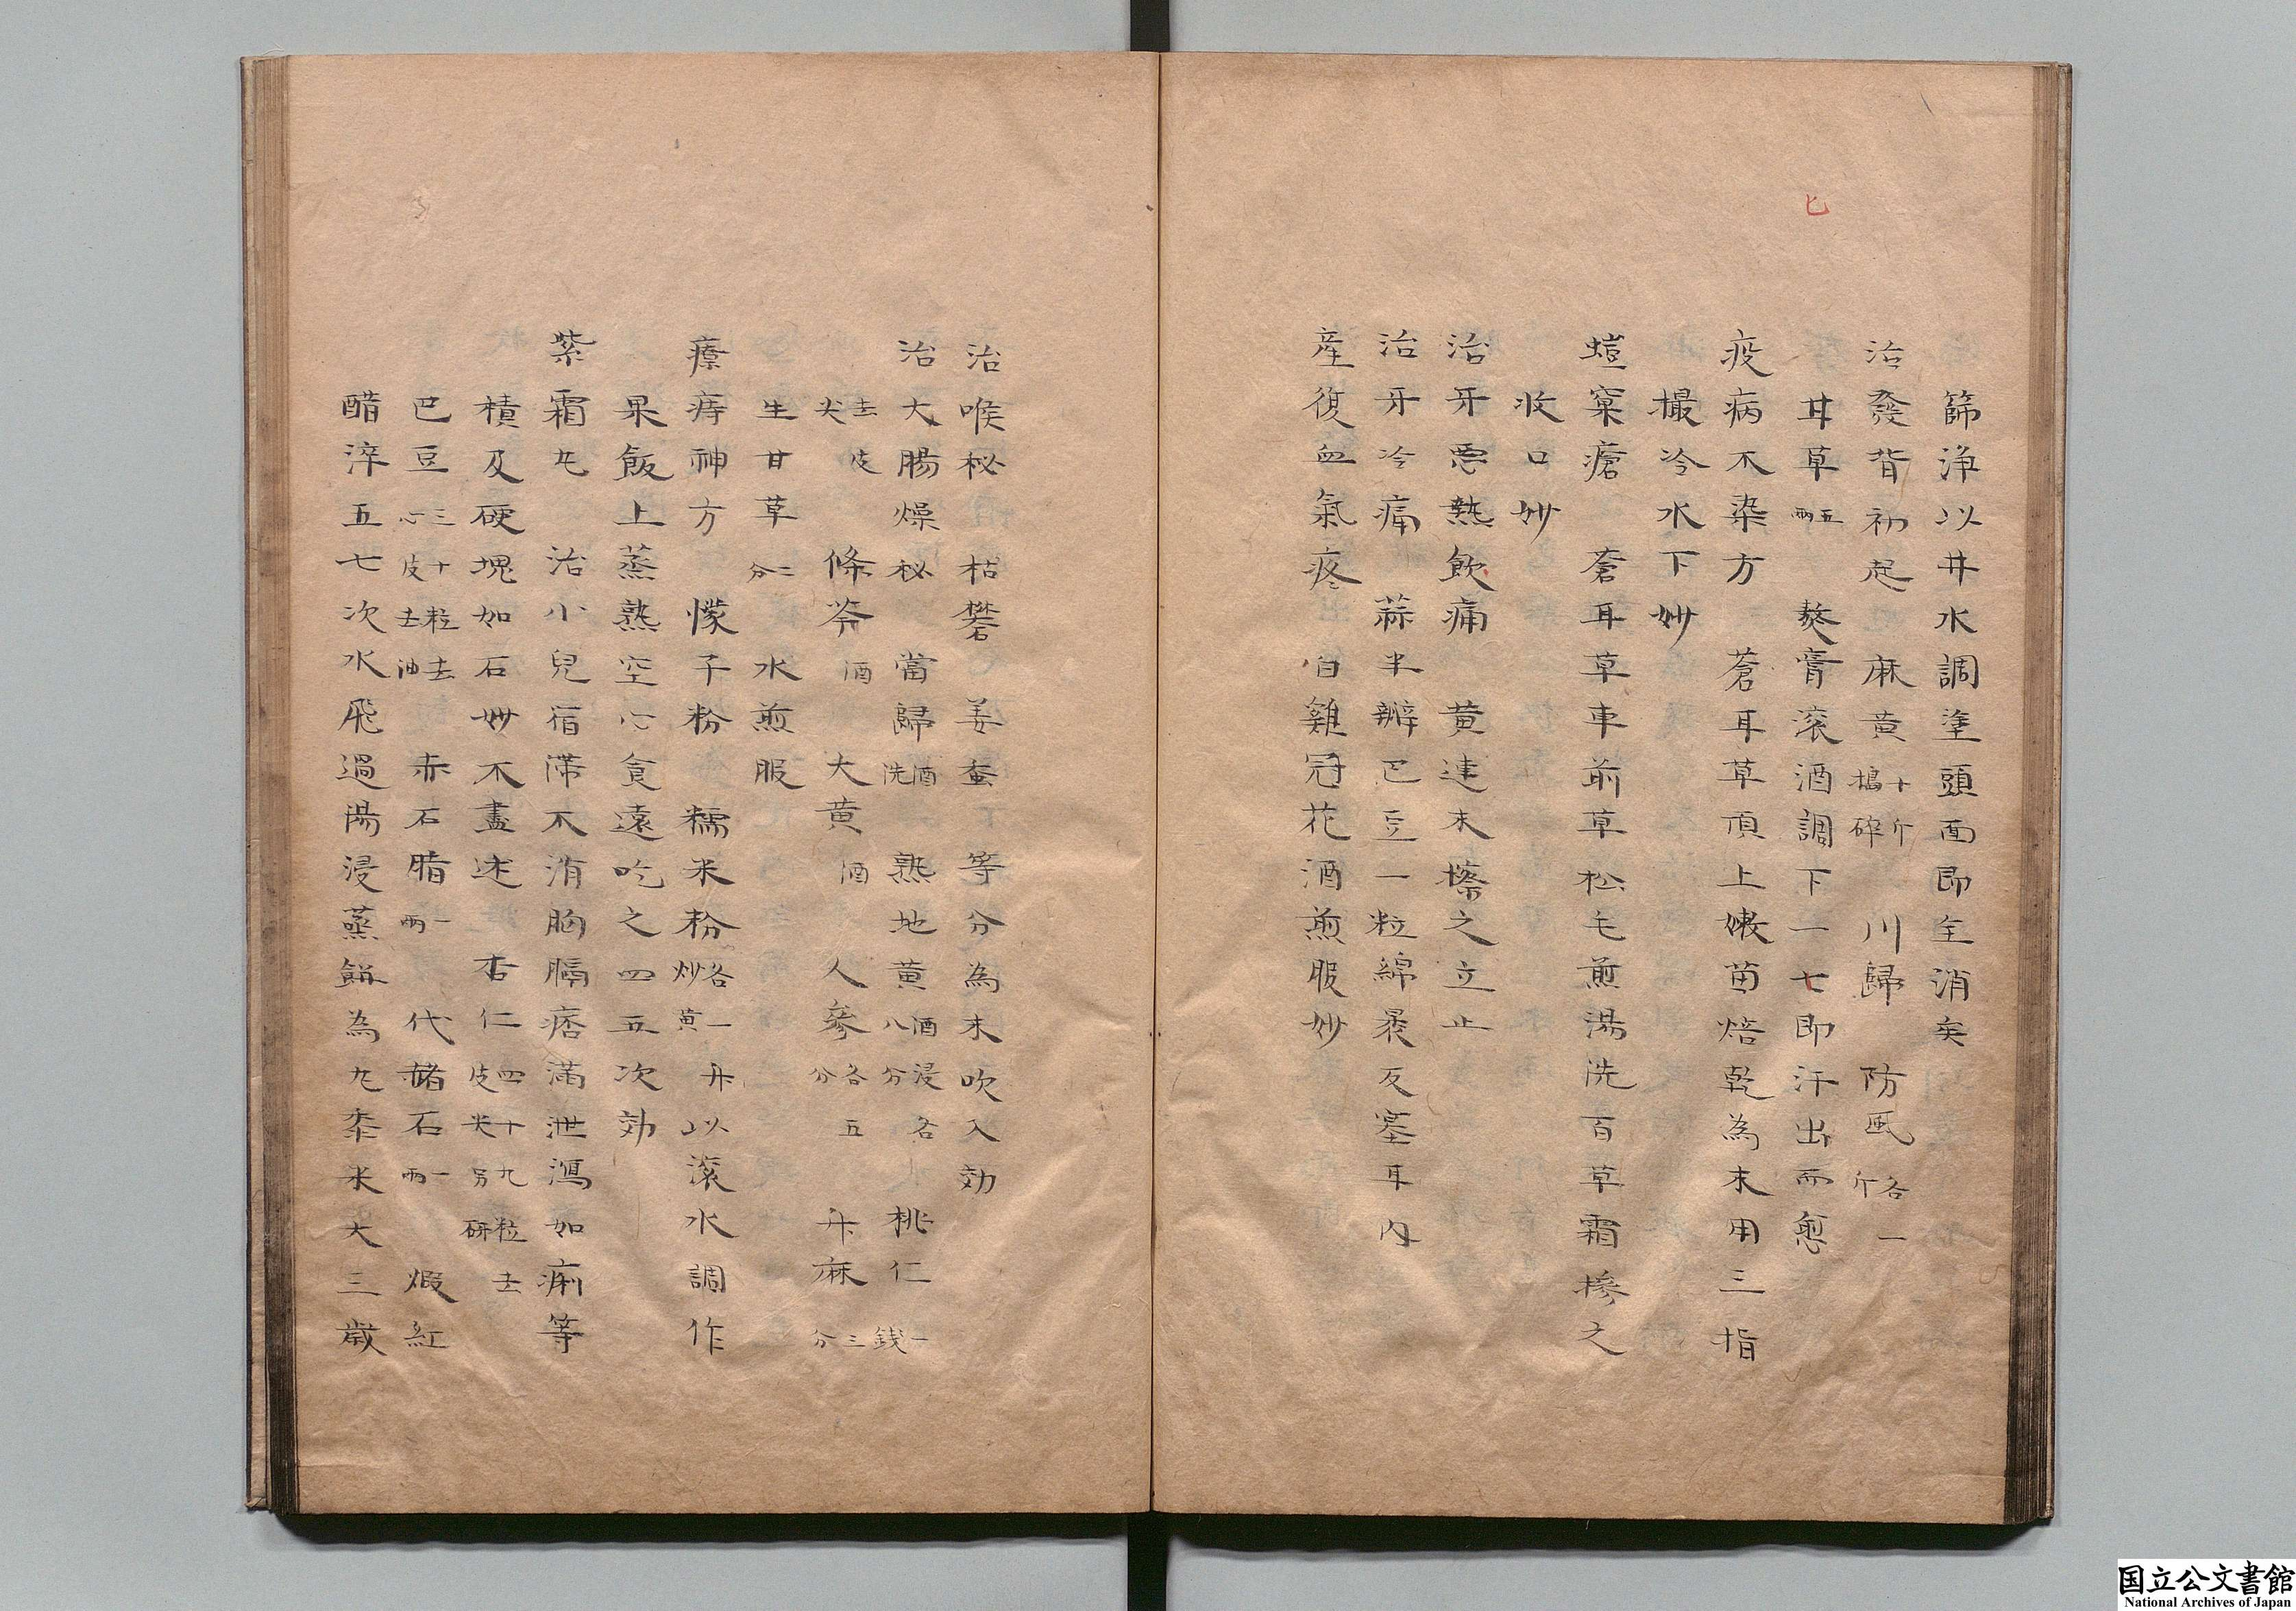 匕
篩浄以井水調塗頭面即全消矣
治發背初起 麻黄十斤搗碎 川歸 防風各一斤
甘草五兩 熬膏滚酒調下一七即汗出而愈
疫病不染方 蒼耳草頂上嫩苗焙乾為末用三指
撮冷水下妙
螘窠瘡 蒼耳草車前草松毛煎湯洗百草霜摻之
收口妙
治牙悪熱飲痛 黄連末擦之立止
治牙冷痛 蒜半瓣巴豆一粒綿裹反塞耳内
産復血氣疼 白雞冠花酒煎服妙
治喉秘 枯礬 姜蚕等分為末吹入効
治大腸燥秘 當歸酒洗 熟地黄酒浸各八分 桃仁一錢
去皮尖 條芩酒 大黄酒 人參各五分 升麻三分
生甘草二分 水煎服
療痔神方 檬子粉 糯米粉各一升炒黄 以滚水調作
果飯上蒸熟空心食遠吃之四五次効
紫霜丸 治小兒宿滞不消胸膈痞滿泄瀉如痢等
積及硬塊如石妙不盡述 杏仁四十九粒去皮尖另研
巴豆三十粒去心皮去油 赤石脂一兩 代赭石一兩 煆紅
醋淬五七次水飛過湯浸蒸餅為丸黍米大三歳
国立公文書館
National Archives of Japan